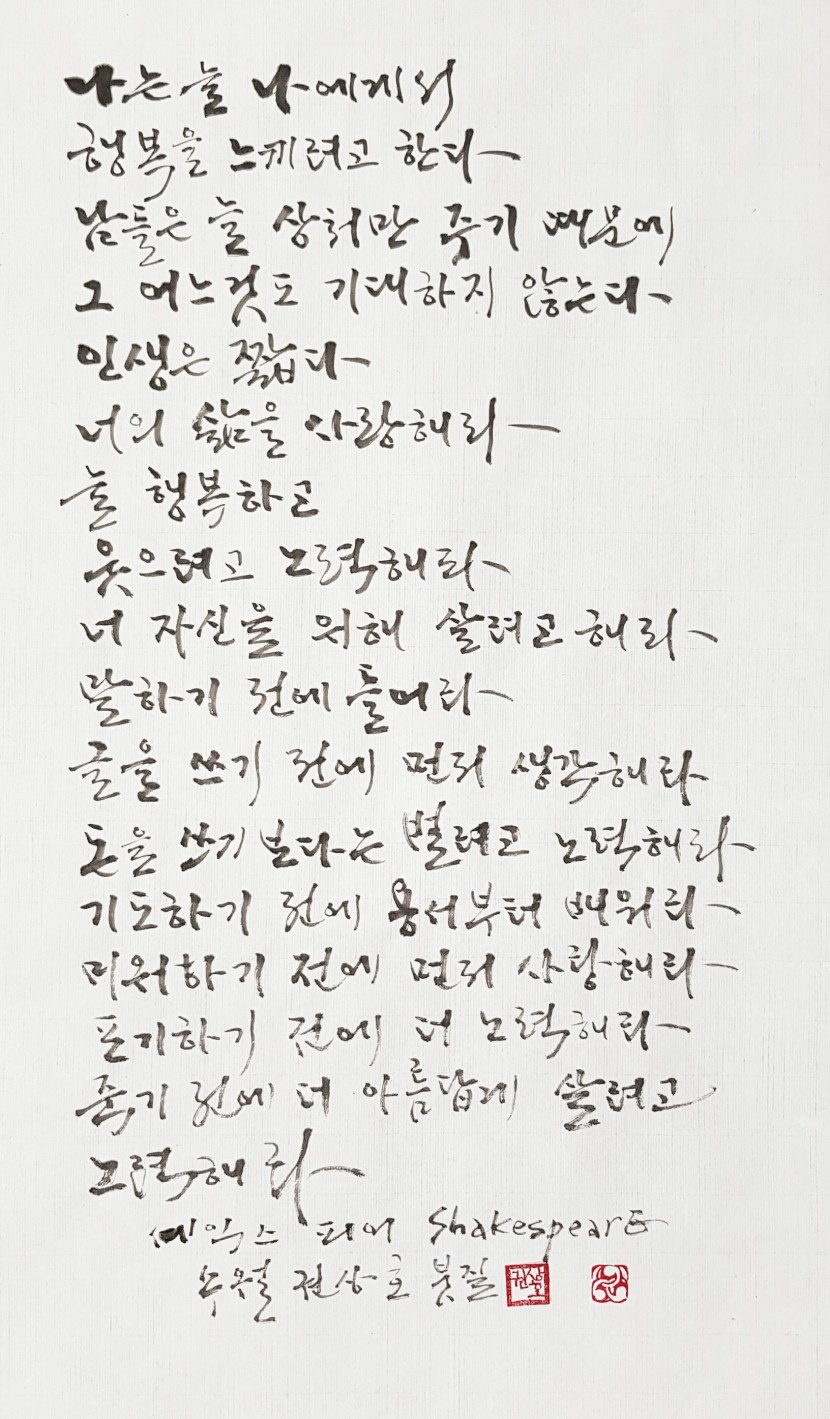 나는 늘 나에게서
행복을 느끼려고 한다
남들은 늘 상처만 주기 때문에
그 어느것도 기대하지 않는다
인생은 짧다
너의 삶을 사랑해라
늘 행복하고
웃으려고 노력해라
너 자신을 위해 살려고 해라
말하기 전에 들어라
글을 쓰기 전에 먼저 생각해라
돈을 쓰기 보다는 벌려고 노력해라
기도하기 전에 용서부터 배워라
미워하기 전에 먼저 사랑해라
포기하기 전에 더 노력해라
죽기 전에 더 아름답게 살려고
노력해라
세익스피어 Shakespeare
수월 권상호 붓질